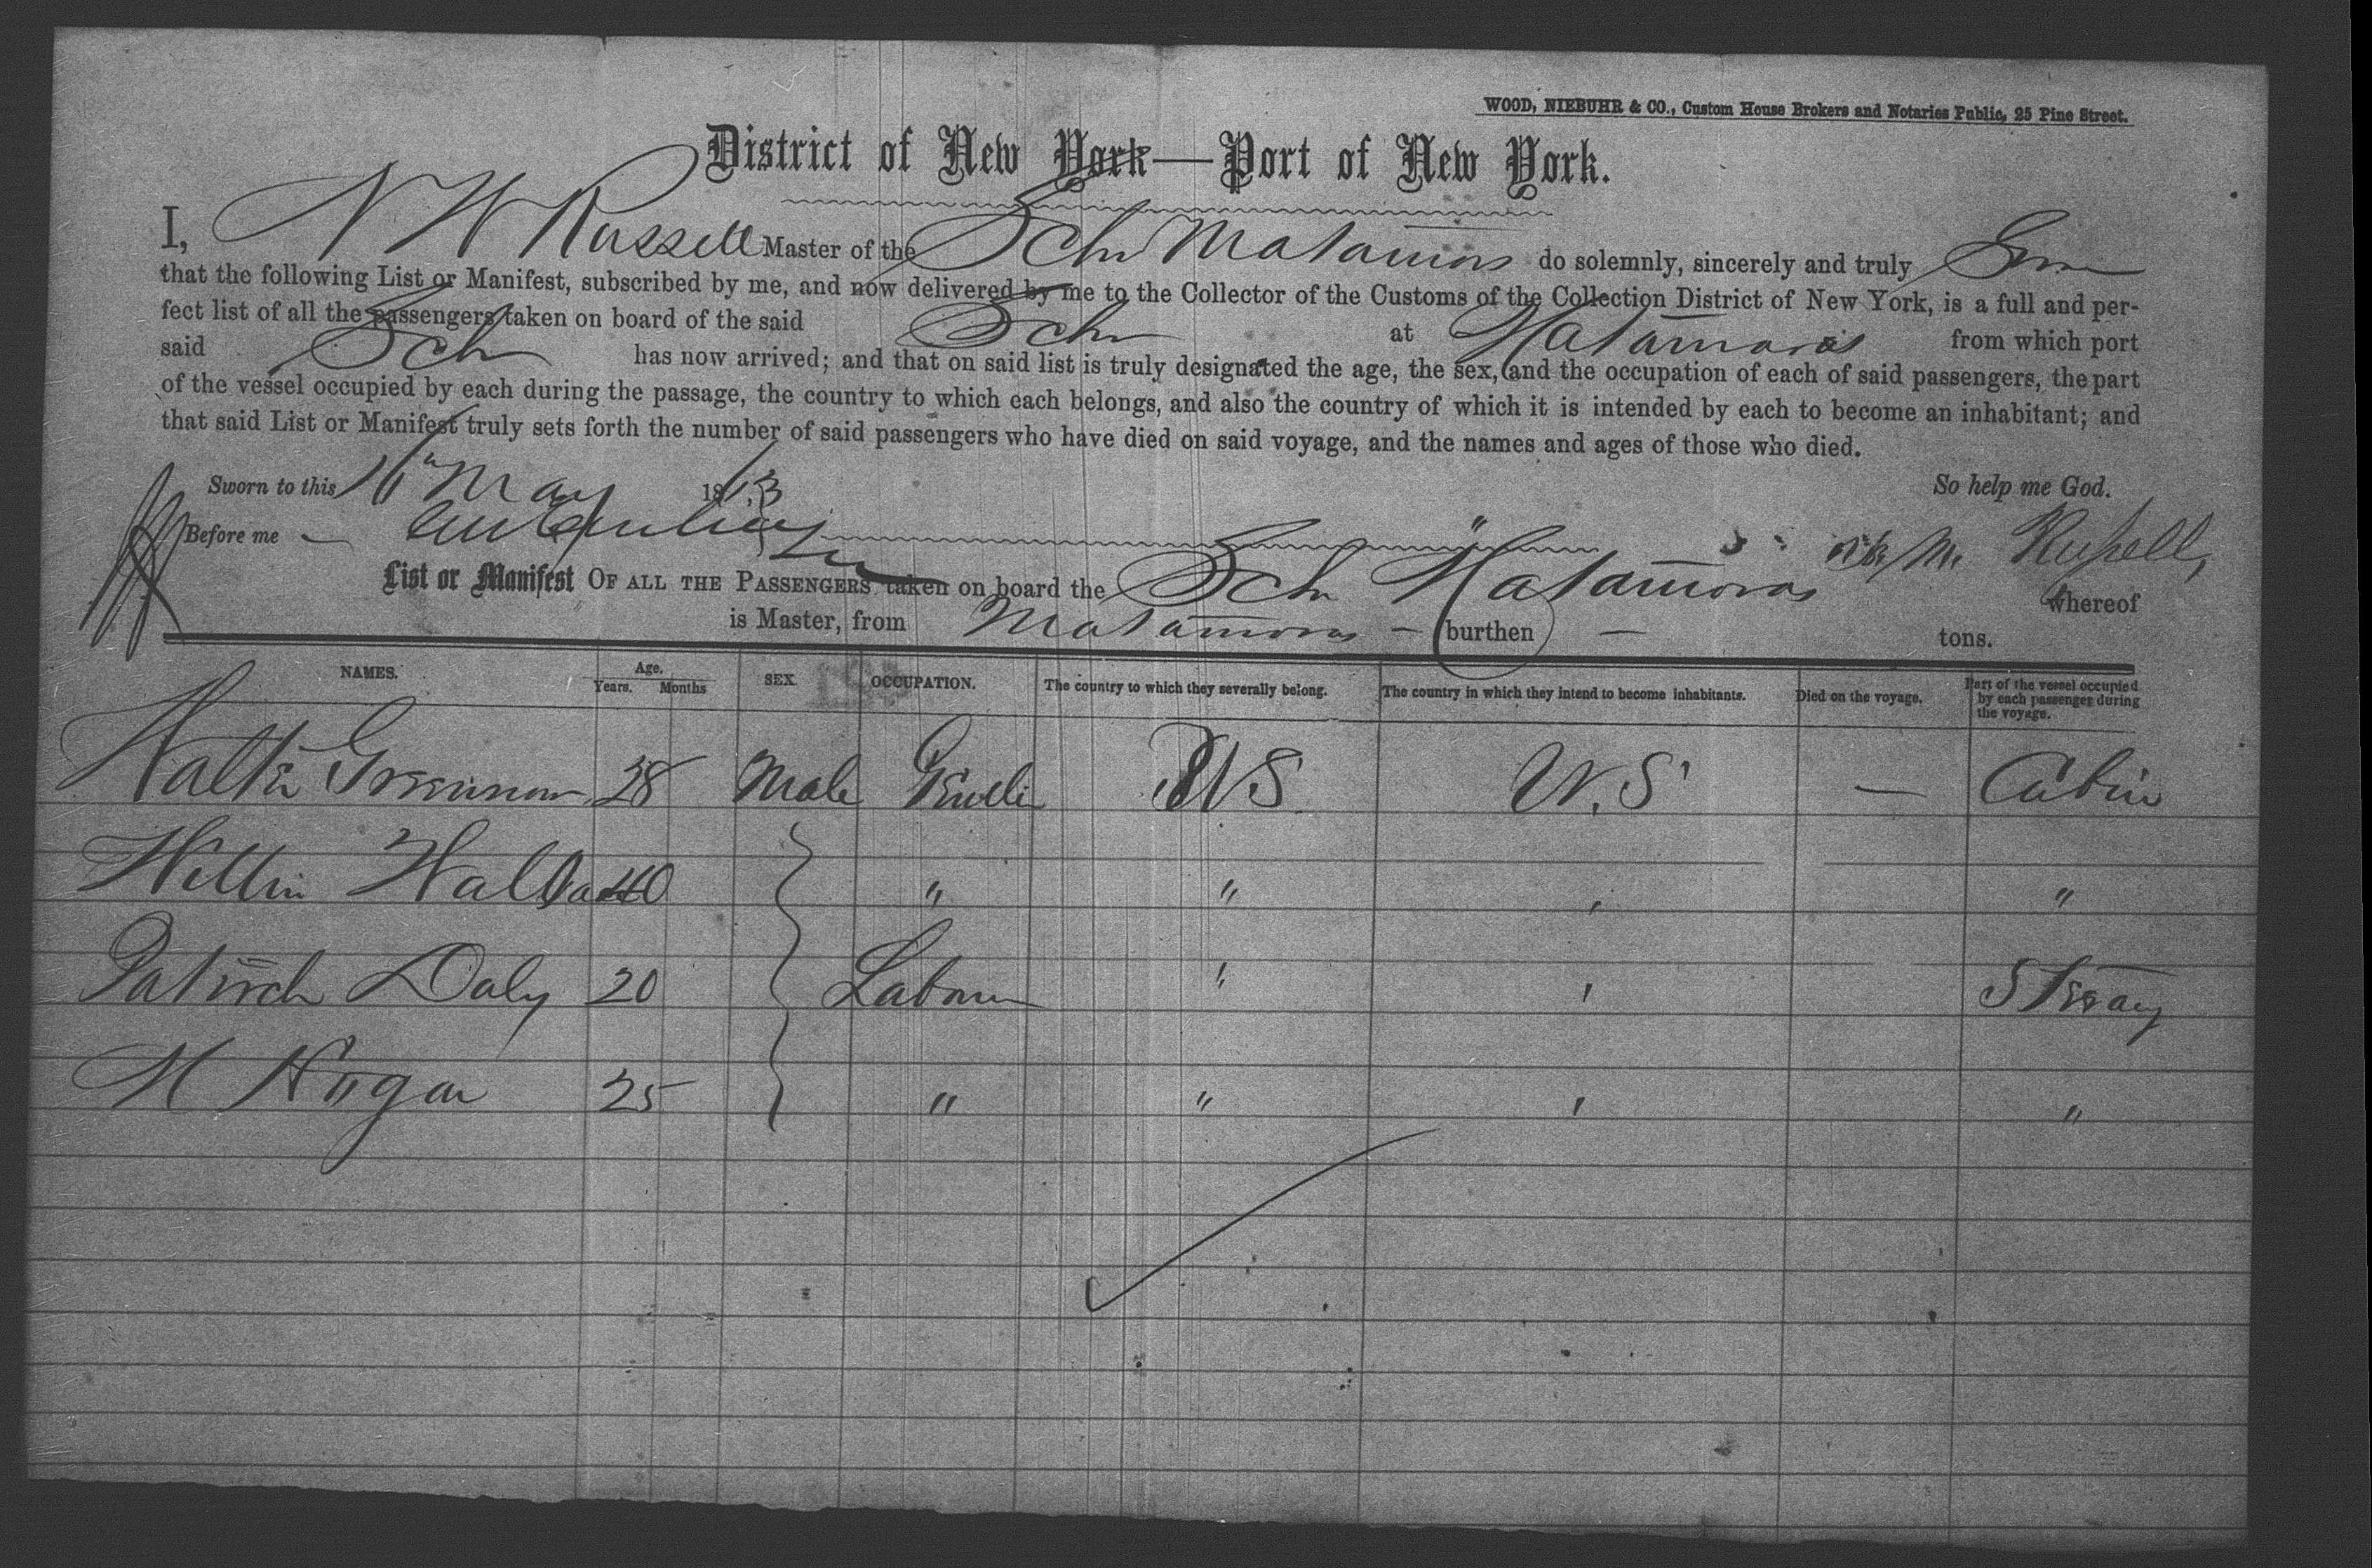 WOOD, NIEBUHR & CO., Custom House Brokers and Notaries Public, 25 Pine Street.
District of New York—Port of New York.
I, N W Russell Master of the Schr Matamoras do solemnly, sincerely and truly
that the following List or Manifest, subscribed by me, and now delivered by me to the Collector of the Customs of the Collection District of New York, is a full and per-
fect list of all the passengers taken on board of the said Schr at Matamoras from which port
said Schr has now arrived; and that on said list is truly designated the age, the sex, and the occupation of each of said passengers, the part
of the vessel occupied by each during the passage, the country to which each belongs, and also the country of which it is intended by each to become an inhabitant; and
that said List or Manifest truly sets forth the number of said passengers who have died on said voyage, and the names and ages of those who died.
Sworn to this May 18 3 So help me God.
Before me Russell,
List or Manifest OF ALL THE PASSENGERS taken on board the Schr Matamoras whereof
is Master, from Matamoras — burthen — tons.
NAMES. Age. Years. Months SEX. OCCUPATION. The country to which they severally belong. The country in which they intend to become inhabitants. Died on the voyage. Part of the vessel occupied by each passenger during the voyage.
28 Male U S U.S — Cabin
40 " " " "
Patrick Daly 20 Labour " "
M Hogan 25 " " " "